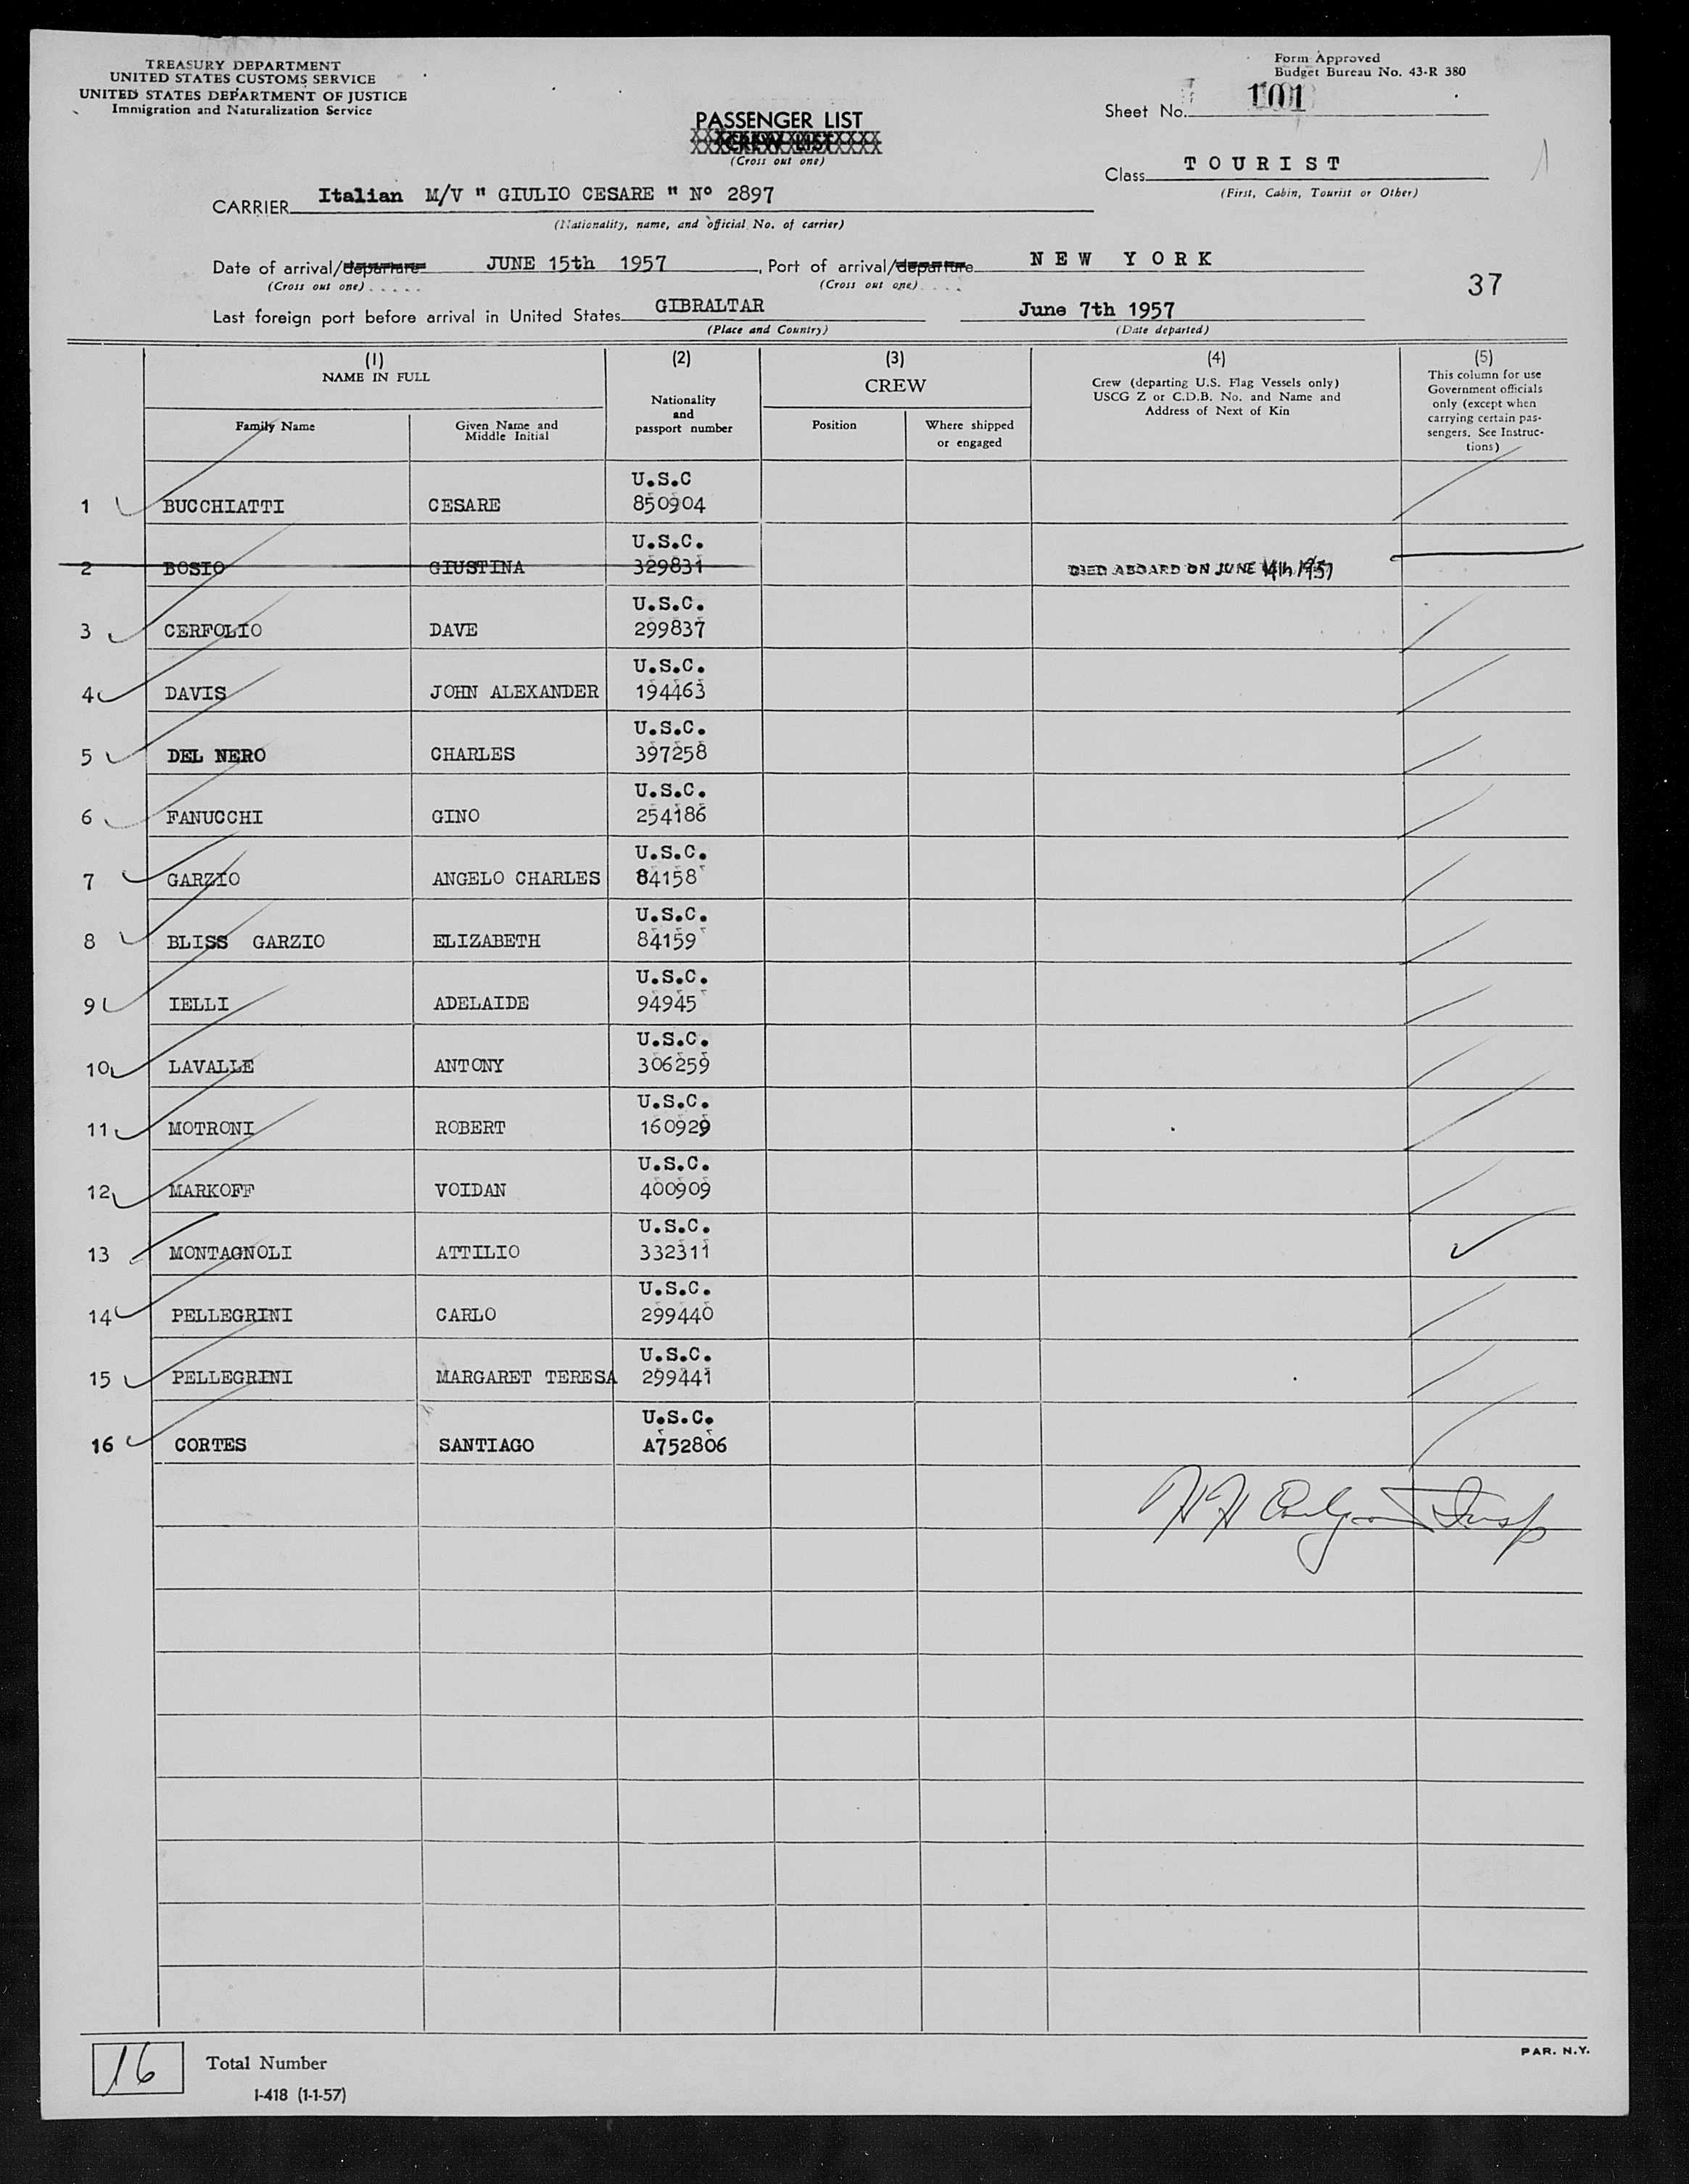 TREASURY DEPARTMENT
UNITED STATES CUSTOMS SERVICE
UNITED STATES DEPARTMENT OF JUSTICE
Immigration and Naturalization Service
Form Approved
Budget Bureau No. 43-R 380
Sheet No. 101
PASSENGER LIST
CREW LIST
(Cross out one)
Class TOURIST
(First, Cabin, Tourist or Other)
CARRIER Italian M/V " GIULIO CESARE " Nº 2897
(Nationality, name, and official No. of carrier)
Date of arrival/departure JUNE 15th 1957, Port of arrival/departure NEW YORK
(Cross out one) (Cross out one)
37
Last foreign port before arrival in United States GIBRALTAR June 7th 1957
(Place and Country) (Date departed)
(1) NAME IN FULL
Family Name
Given Name and Middle Initial
(2) Nationality and passport number
(3) CREW
Position
Where shipped or engaged
(4) Crew (departing U.S. Flag Vessels only) USCG Z or C.D.B. No. and Name and Address of Next of Kin
(5) This column for use Government officials only (except when carrying certain passengers. See Instructions)
U.S.C
1 BUCCHIATTI CESARE 850904
U.S.C.
2 BOSIO GIUSTINA 329831 DIED ABOARD ON JUNE 14th 1957
U.S.C.
3 CERFOLIO DAVE 299837
U.S.C.
4 DAVIS JOHN ALEXANDER 194463
U.S.C.
5 DEL NERO CHARLES 397258
U.S.C.
6 FANUCCHI GINO 254186
U.S.C.
7 GARZIO ANGELO CHARLES 84158
U.S.C.
8 BLISS GARZIO ELIZABETH 84159
U.S.C.
9 IELLI ADELAIDE 94945
U.S.C.
10 LAVALLE ANTONY 306259
U.S.C.
11 MOTRONI ROBERT 160929
U.S.C.
12 MARKOFF VOIDAN 400909
U.S.C.
13 MONTAGNOLI ATTILIO 332311
U.S.C.
14 PELLEGRINI CARLO 299440
U.S.C.
15 PELLEGRINI MARGARET TERESA 299441
U.S.C.
16 CORTES SANTIAGO A752806
Insp
16 Total Number
I-418 (1-1-57)
PAR. N.Y.